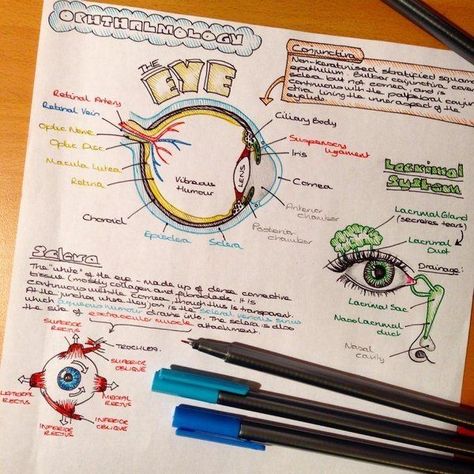 OPHTHALMOLOGY
THE
EYE
Conjunctiva
Non-keratinised stratified squa
epithelium. Bulbar conjunctiva cove
sclera but not cornea, and is
continuous with the palpebral conju
ctiva lining the inner aspect of the
eyelids.
Retinal Artery
Retinal Vein
Optic Nerve
Optic Disc
Macula Lutea
Retina
Choroid
Episclera
Sclera
Vitreous
Humour
LENS
Ciliary Body
Suspensory
ligament
Iris
Cornea
Anterior
chamber
Posterior
chamber
Lacrimal
System
Lacrimal Gland
(secretes tears)
Lacrimal
Duct
Drainage
Lacrimal Sac
Nasolacrimal
duct
Nasal
cavity
Sclera
The "white" of the eye - made up of dense connective
tissue (mostly collagen and fibroblasts. It is
continuous with the cornea, though this is transparent.
At the junction where they join is the scleral venous sinus
which aqueous humour drains into. The sclera is also
the site of extraocular muscle attachment.
SUPERIOR
RECTUS
TROCHLEA
SUPERIOR
OBLIQUE
LATERAL
RECTUS
MEDIAL
RECTUS
INFERIOR
OBLIQUE
INFERIOR
RECTUS